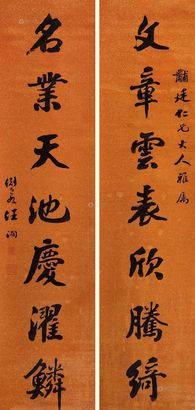 黼廷仁兄大人雅属
文章雲表欣騰綺
名業天池慶濯鱗
汪洵